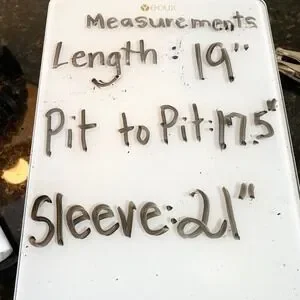 Measurements
Length: 19"
Pit to Pit: 17.5"
Sleeve: 21"